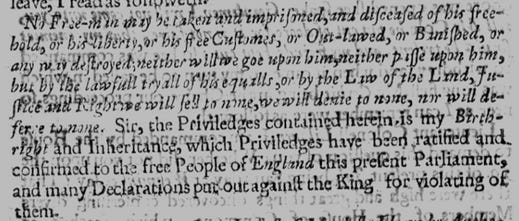 leave, I read as followeth.
No Free-man may be taken and imprisoned, and disceased of his free-
hold, or his liberty, or his free Customes, or Out-lawed, or Banished, or
any way destroyed, neither will we goe upon him, neither passe upon him,
but by the lawfull tryall of his equalls, or by the Law of the Land, Ju-
stice and Right we will sell to none, we will denie to none, nor will de-
ferre to none. Sir, the Priviledges contained herein is my Birth-
right and Inheritance, which Priviledges have been ratified and
confirmed to the free People of England this present Parliament,
and many Declarations put out against the King for violating of
them.